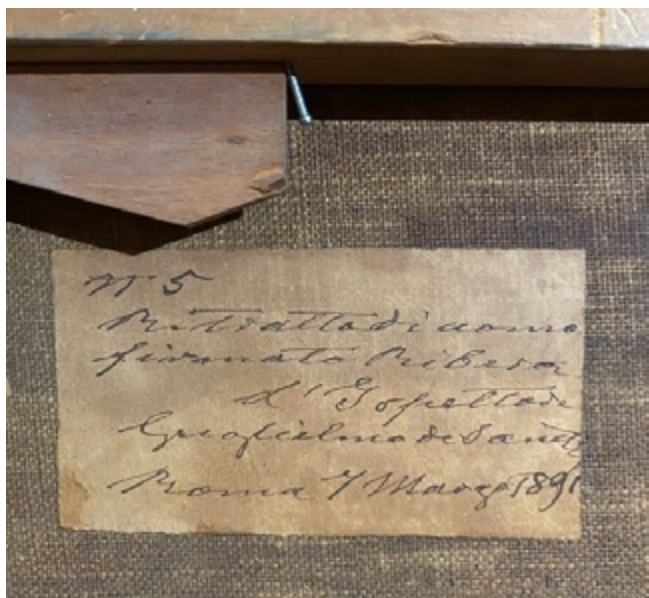 N° 5
Ritratto di uomo
firmato Ribera
L'Ispettore
Guglielmo de Sanctis
Roma 7 Marzo 1891